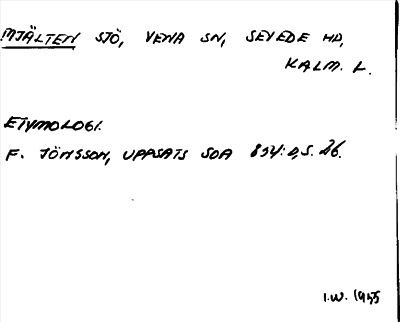 MJÄLTEN SJÖ, VENA SN, SEVEDE HD,
KALM. L.
ETYMOLOGI.
F. JÖNSSON, UPPSATS SOA 834: D, S. 26.
I.W. 1955